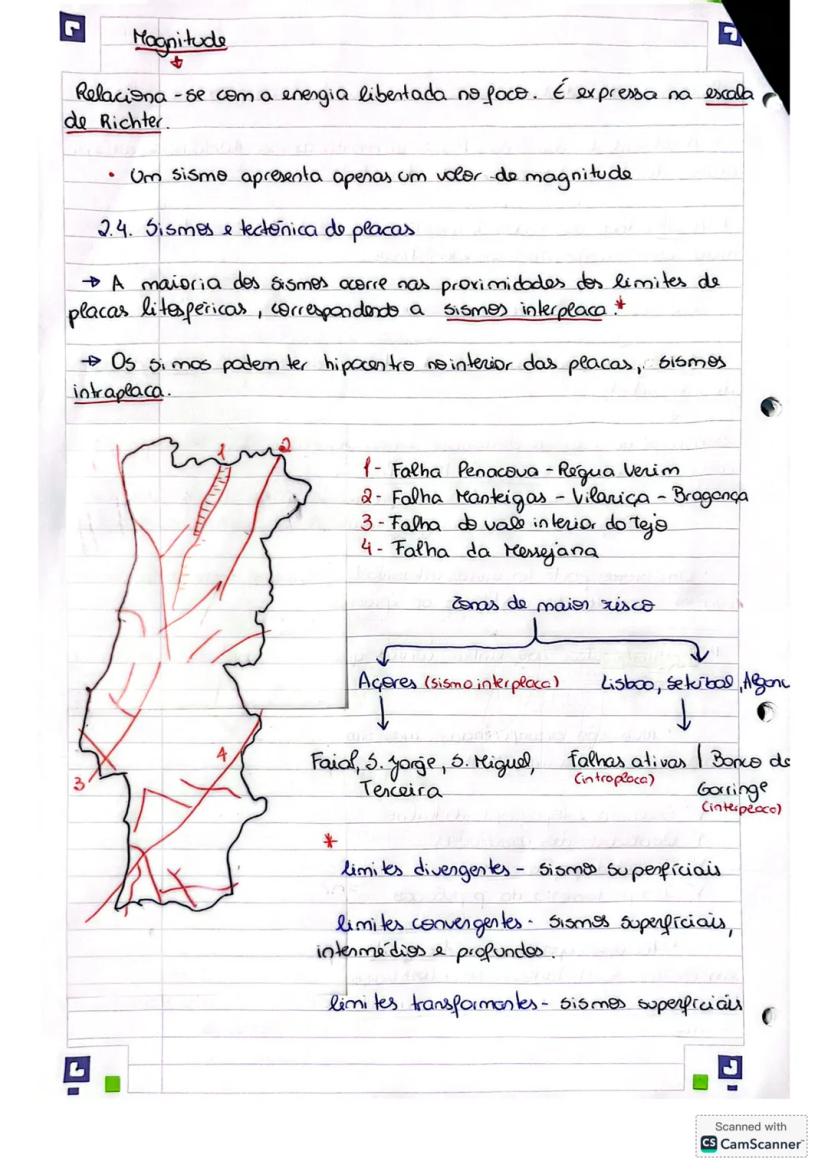 Magnitude
Relaciona-se com a energia libertada no foco. É expressa na escala
de Richter.
• Um sismo apresenta apenas um valor de magnitude
2.4. Sismos e tectónica de placas
→ A maioria dos sismos ocorre nas proximidades dos limites de
placas litosféricas, correspondendo a sismos interplaca.*
→ Os simos podem ter hipocentro no interior das placas, sismos
intraplaca.
1
2
3
4
1- Falha Penacova - Régua Verim
2- Falha Manteigas - Vilariça - Bragança
3- Falha do vale interior do tejo
4- Falha da Messejana
Zonas de maior risco
Açores (sismo interplaca)
Lisboa, Setúbal, Algarv
Faial, S. Jorge, S. Miguel,
Terceira
Falhas ativas | Banco de
(intraplaca)
Gorringe
(interplaca)
*
limites divergentes - sismos superficiais
limites convergentes - sismos superficiais,
intermédios e profundos.
limites transformantes - sismos superficiais
Scanned with
CS CamScanner